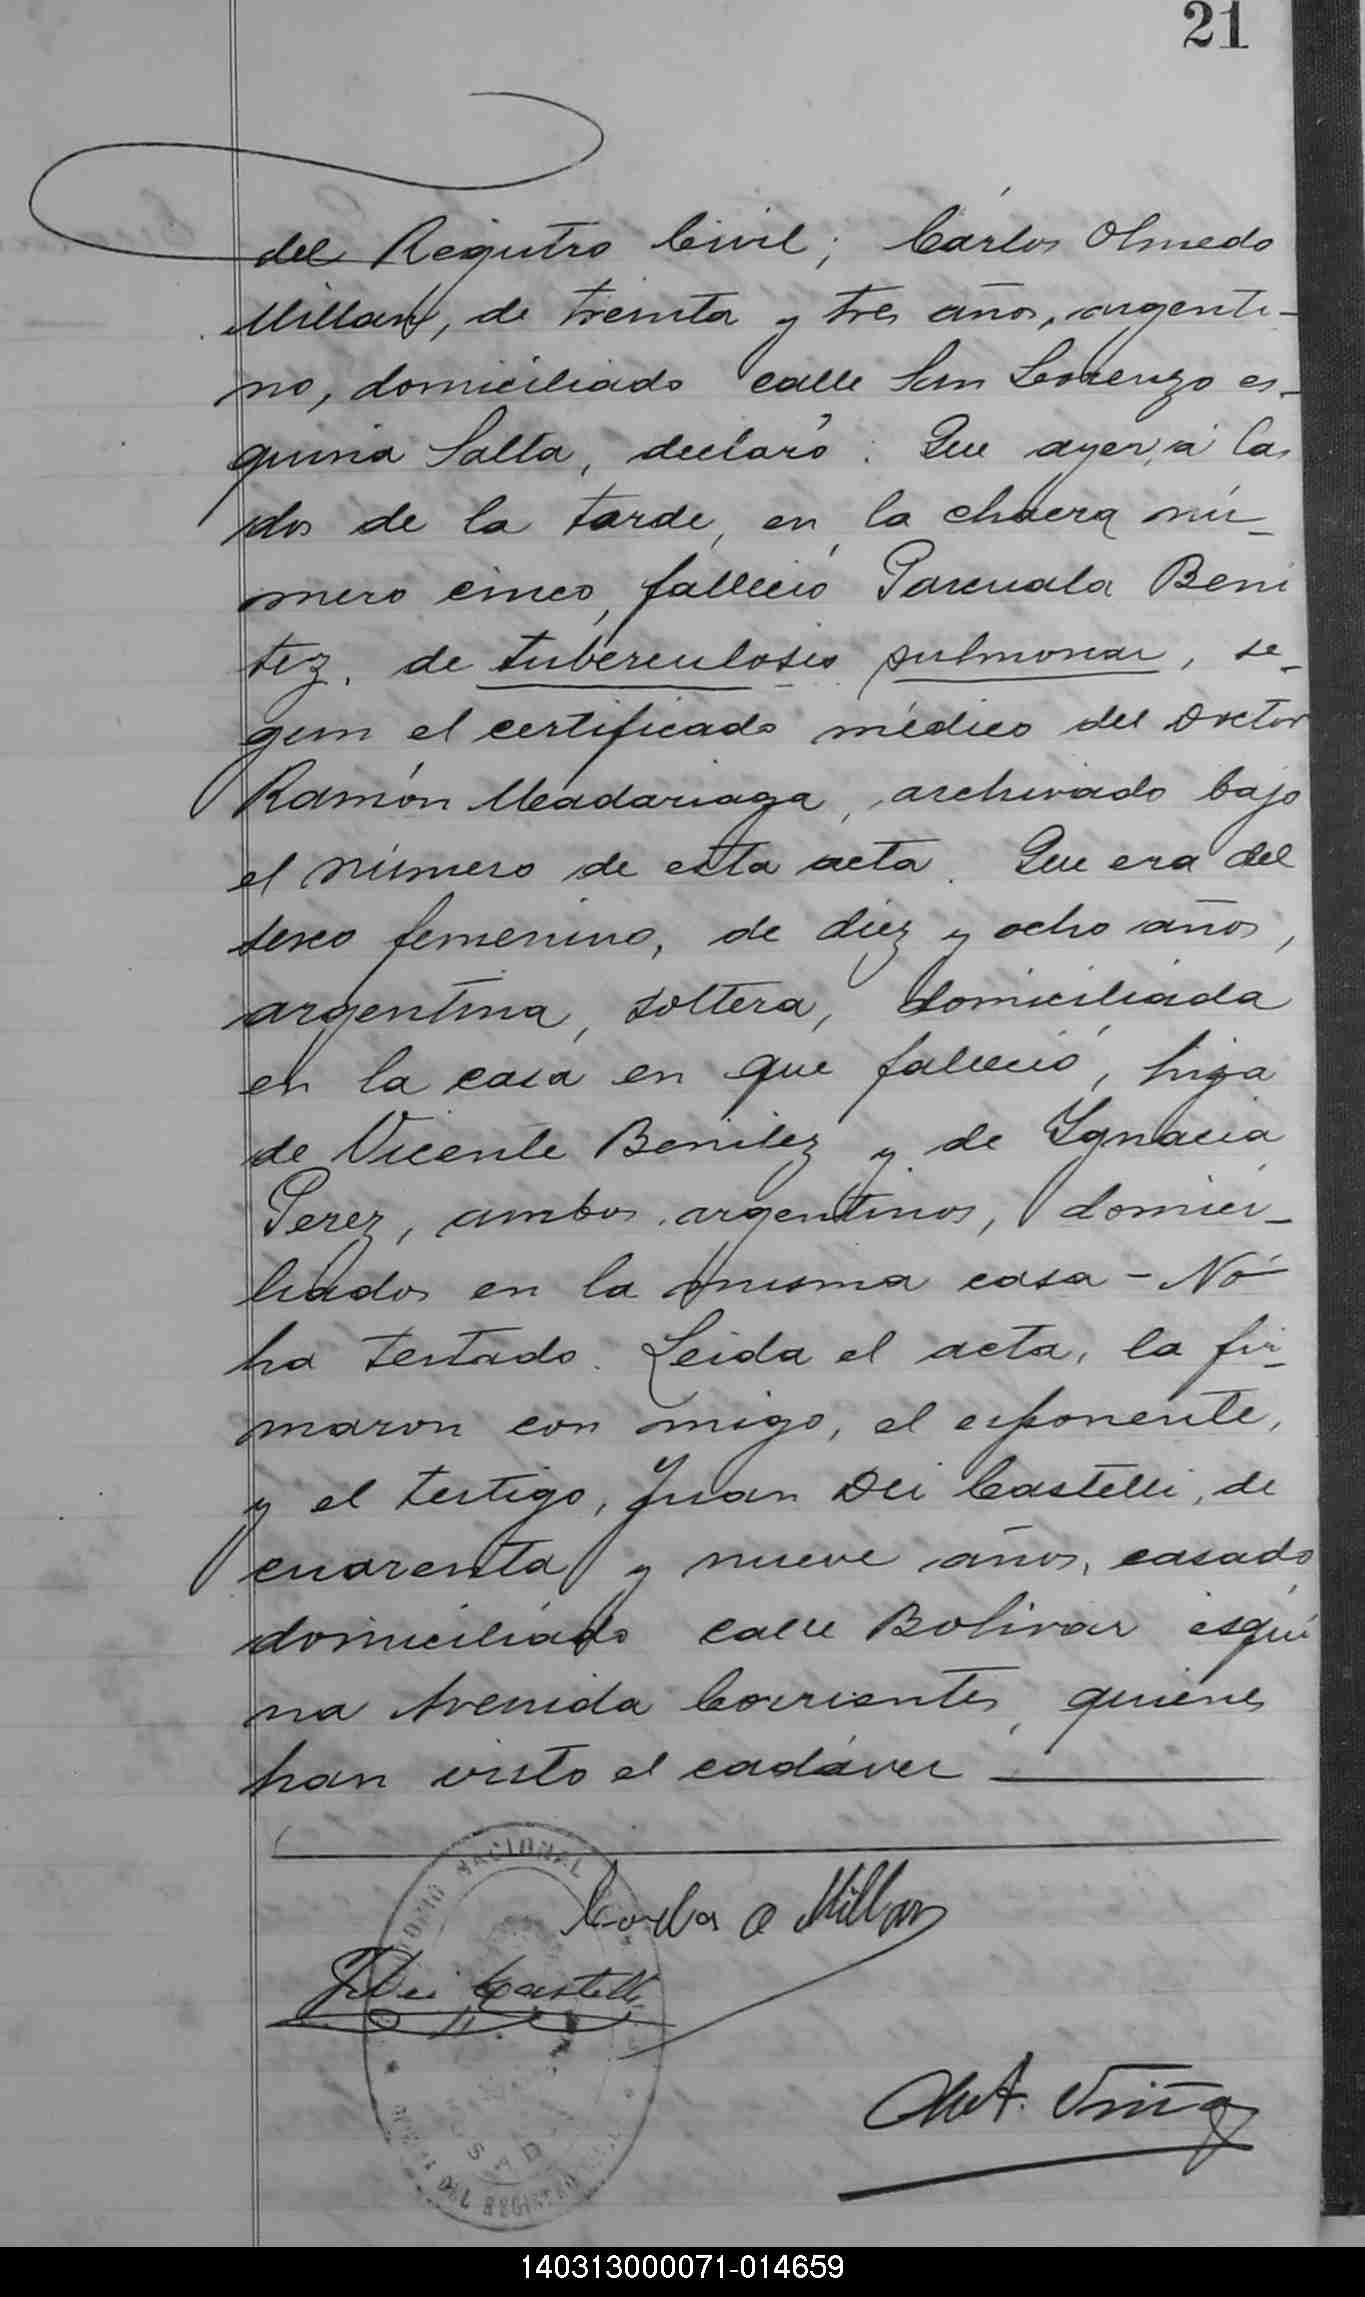 21
del Registro Civil; Cárlos Olmedo
Millan, de treinta y tres años, argenti-
no, domiciliado calle San Lorenzo es-
quina Salta, declaró: Que ayer, á las
dos de la tarde, en la chacra nú-
mero cinco, falleció Pascuala Beni
tez, de tuberculosis pulmonar, se-
gun el certificado médico del Doctor
Ramón Madariaga, archivado bajo
el número de esta acta. Que era del
sexo femenino, de diez y ocho años,
argentina, soltera, domiciliada
en la casa en que falleció, hija
de Vicente Benitez y de Ygnacia
Perez, ambos argentinos, domici-
liados en la misma casa - Nó
ha testado. Leida el acta, la fir-
maron con migo, el exponente,
y el testigo, Juan Dei Castelli, de
cuarenta y nueve años, casado,
domiciliado calle Bolivar esqui
na Avenida Corrientes, quienes
han visto el cadáver
Carlos O Millan
J. Dei Castelli
NACIONAL
DEL REGISTRO
POSADAS
140313000071-014659